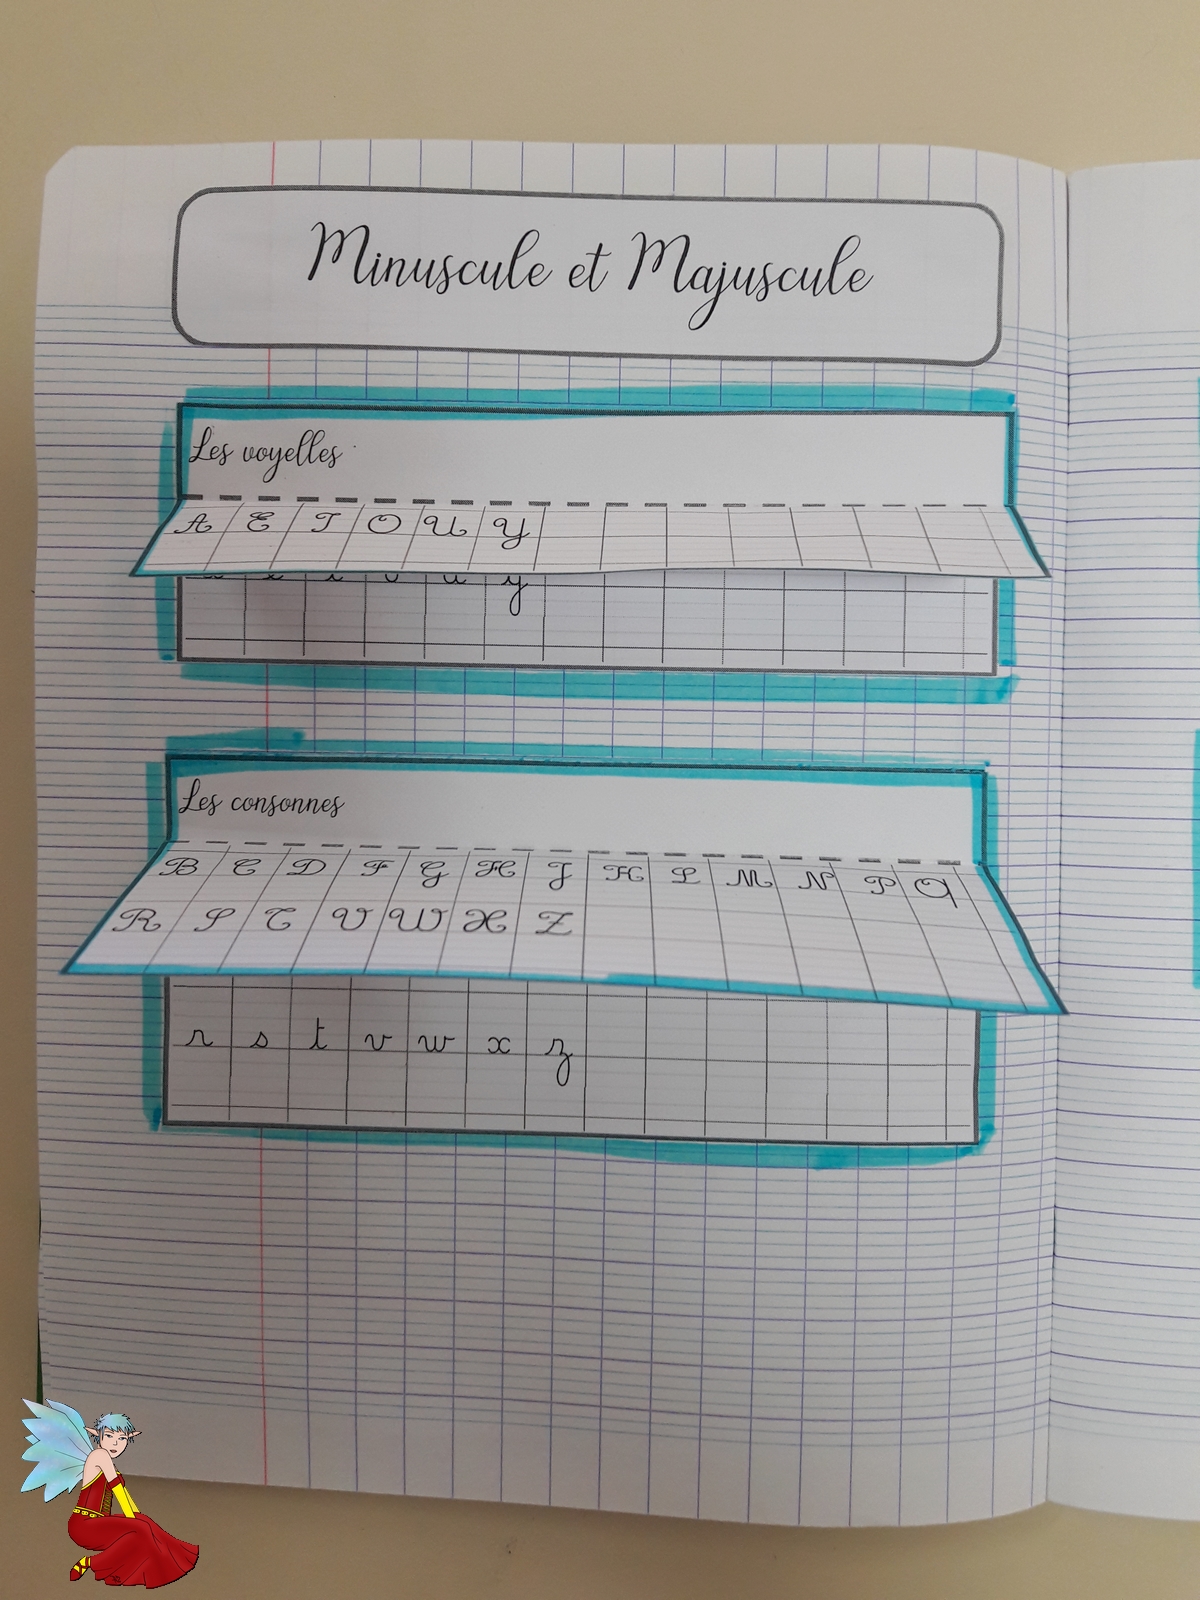 Minuscule et Majuscule
Les voyelles
A E I O U Y
a e i o u y
Les consonnes
B C D F G H J K L M N P Q
R S T V W X Z
r s t v w x z